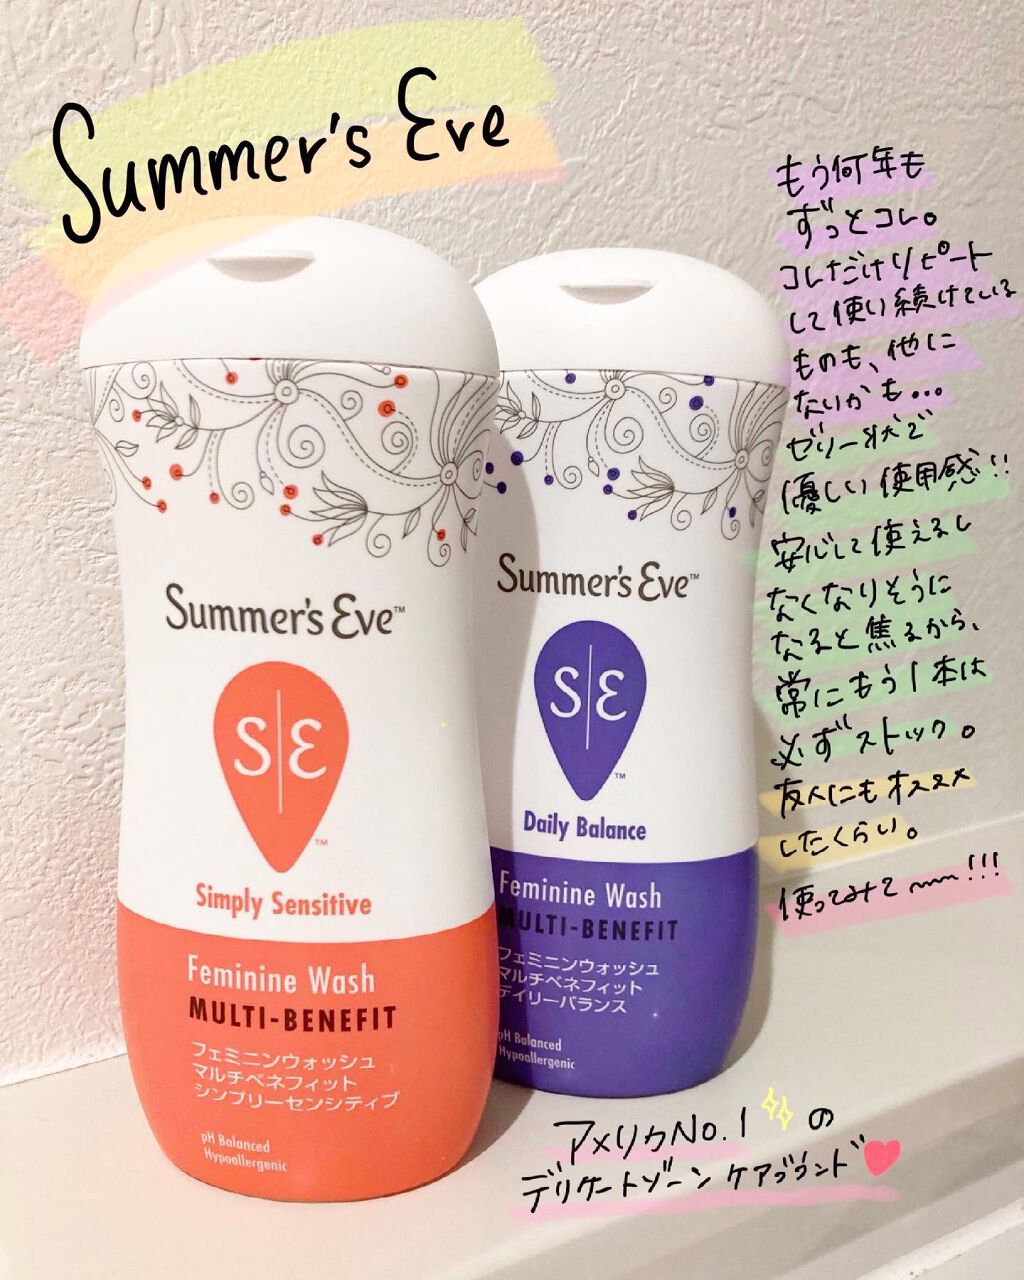 Summer's Eve
もう何年も
ずっとコレ。
コレだけリピート
して使い続けている
ものも、他に
ないかも...
ゼリー状で
優しい使用感!!
安心して使えるし
なくなりそうに
なると焦るから、
常にもう1本は
必ずストック。
友人にもオススメ
したくらい。
使ってみて〜!!!
Summer's Eve™
S|E
™
Simply Sensitive
Feminine Wash
MULTI-BENEFIT
フェミニンウォッシュ
マルチベネフィット
シンプリーセンシティブ
pH Balanced
Hypoallergenic
Summer's Eve™
S|E
™
Daily Balance
Feminine Wash
MULTI-BENEFIT
フェミニンウォッシュ
マルチベネフィット
デイリーバランス
pH Balanced
Hypoallergenic
アメリカNo.1の
デリケートゾーンケアブランド